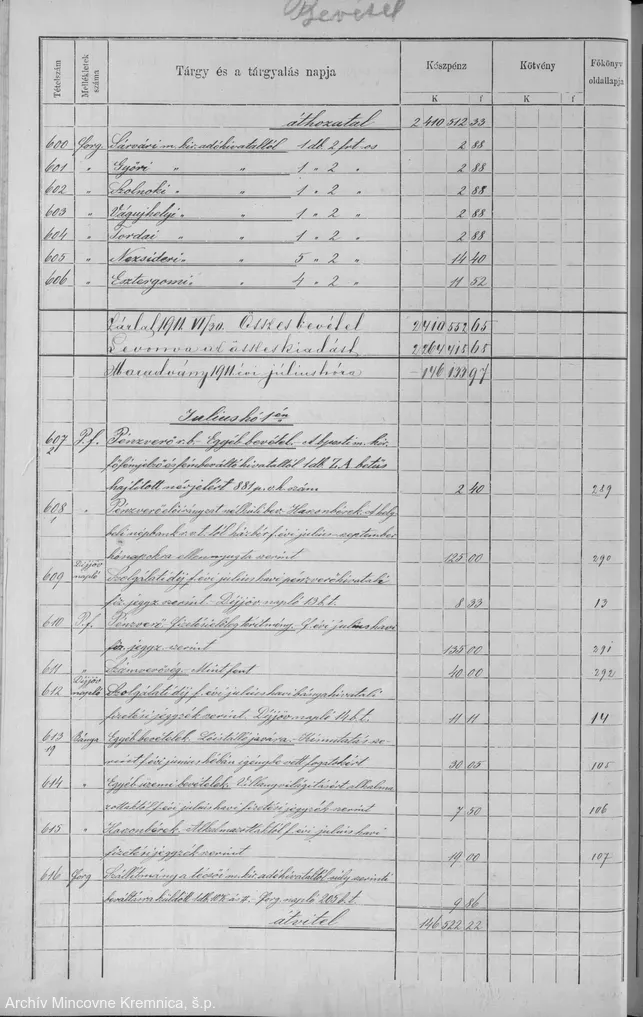 Bevétel
Tételszám Mellékletek száma Tárgy és a tárgyalás napja Készpénz Kötvény Főkönyv oldallapja
K f K f
áthozatal 2 410 512 33
600 Forg Sárvári m. kir. adóhivataltól 1 db 2 frt-os 2 88
601 " Győri " " 1 " 2 " 2 88
602 " Szolnoki " " 1 " 2 " 2 88
603 " Vágujhelyi " " 1 " 2 " 2 88
604 " Tordai " " 1 " 2 " 2 88
605 " Nezsideri " " 5 " 2 " 14 40
606 " Esztergomi " " 4 " 2 " 11 52
Zártal 1911 VI/30. Összes bevétel 2 410 552 65
Levonva az összes kiadást 2 264 415 65
Maradvány 1911 évi július hóra 146 97
Július hó 1én
607 P.f. Pénzverő v. b. Egyéb bevétel. A bpesti m. kir.
2 főfémjelző és fémbeváltó hivataltól 1 db Z.A. betűs
hajlított névjelért 881 p. ck. szám 2 40 289
608 " Pénzverő előirányzat nélküli bev. Haszonbérek. A hely-
1 beli népbank r.t. től házbér f. évi julius-september
hónapokra ellennyugta szerint 125 00 290
609 Díjjöv. napló Szolgálati díj f. évi július havi pénzverőhivatali
fiz. jegyz. szerint. Díjjöv. napló 13 b. t. 8 33 13
610 P.f. Pénzverő. Fizetési illetmény. f. évi julius havi
fiz. jegyz. szerint 135 00 291
611 " Számvevőség. Mint fent 40 00 292
612 Díjjöv. napló Szolgálati díj f. évi julius havi bányahivatali
fizetési jegyzék szerint. Díjjöv. napló 14 b. t. 11 11 14
613 Bánya Egyéb bevételek. Lóistálló javára. Kimutatás sze-
19 rint f. évi július hóban igénybe vett fogatokért 30 05 105
614 " Egyéb üzemi bevételek. Villanyvilágításért alkalma-
zottaktól f. évi július havi fizetési jegyzék szerint 7 50 106
615 " Haszonbérek. Alkalmazottaktól f. évi július havi
fizetési jegyzék szerint 19 00 107
616 Forg Szállítmány a técsői m. kir. adóhivataltól súly szerinti
beváltásra küldött 1 db Forg. napló 205 b. t. 9 86
átvitel 146 522 22
Archív Mincovne Kremnica, š.p.